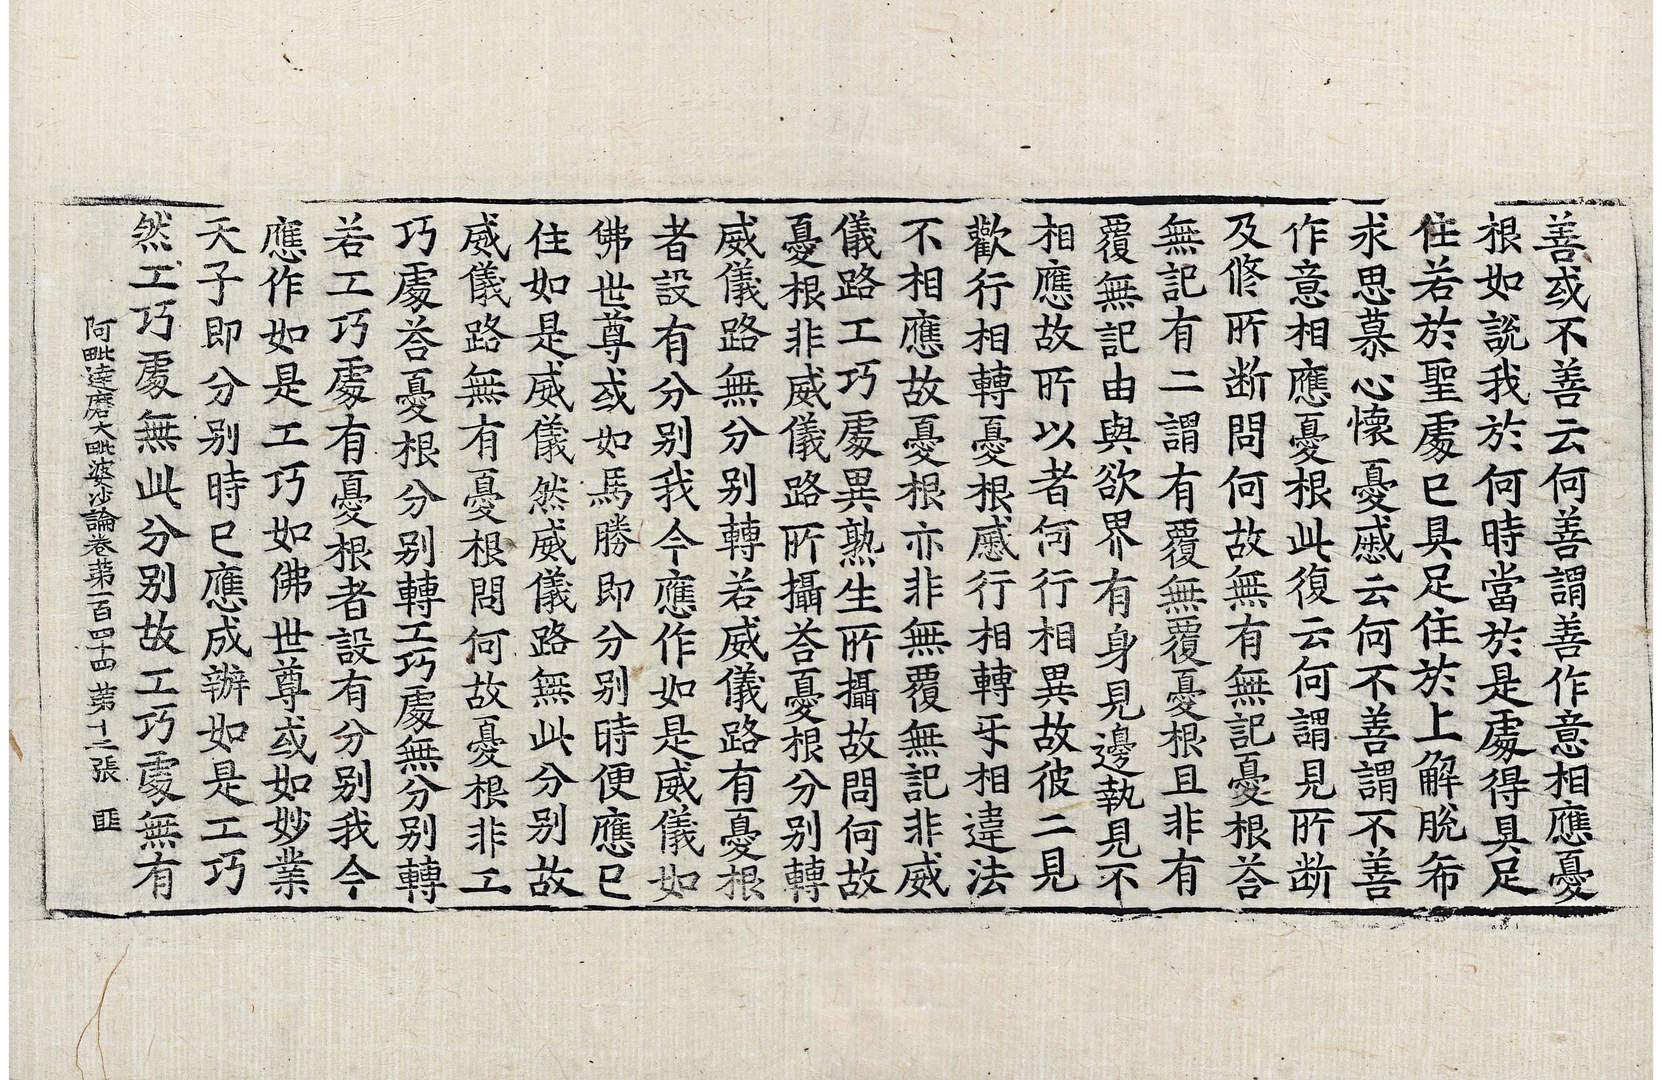 善或不善云何善謂善作意相應憂
根如說我於何時當於是處得具足
住若於聖處已具足住於上解脫希
求思慕心懷憂慼云何不善謂不善
作意相應憂根此復云何謂見所断
及修所断問何故無有無記憂根荅
無記有二謂有覆無覆憂根且非有
覆無記由與欲界有身見邊執見不
相應故所以者何行相異故彼二見
歡行相轉憂根慼行相轉牙相違法
不相應故憂根亦非無覆無記非威
儀路工巧處異熟生所攝故問何故
憂根非威儀路所攝荅憂根分別轉
威儀路無分別轉若威儀路有憂根
者設有分別我今應作如是威儀如
佛世尊或如馬勝即分別時便應已
住如是威儀然威儀路無此分別故
威儀路無有憂根問何故憂根非工
巧處荅憂根分別轉工巧處無分別轉
若工巧處有憂根者設有分別我今
應作如是工巧如佛世尊或如妙業
天子即分別時已應成辦如是工巧
然工巧處無此分別故工巧處無有
阿毗達磨大毗婆沙論卷苐一百四十四 苐十二張 匪